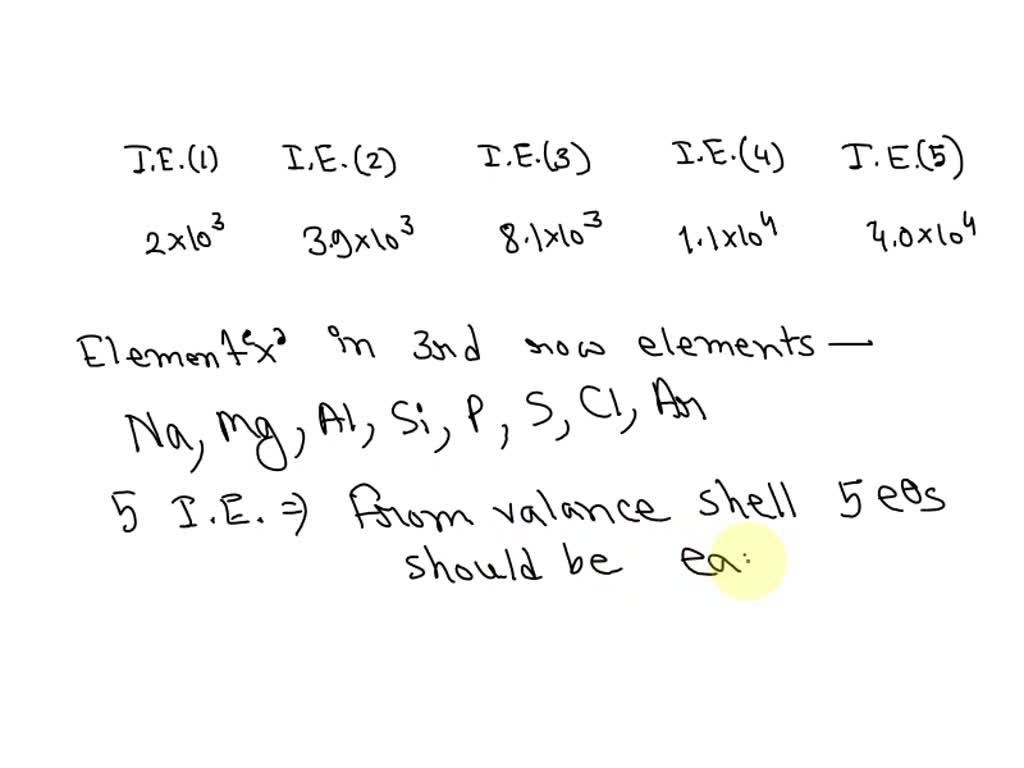 I.E.(1) I.E.(2) I.E.(3) I.E.(4) I.E.(5)
2×10³ 3.9×10³ 8.1×10³ 1.1×10⁴ 4.0×10⁴
Element "x" in 3rd row elements —
Na, Mg, Al, Si, P, S, Cl, Ar
5 I.E. ⇒ From valance shell 5 eθs
should be ea: